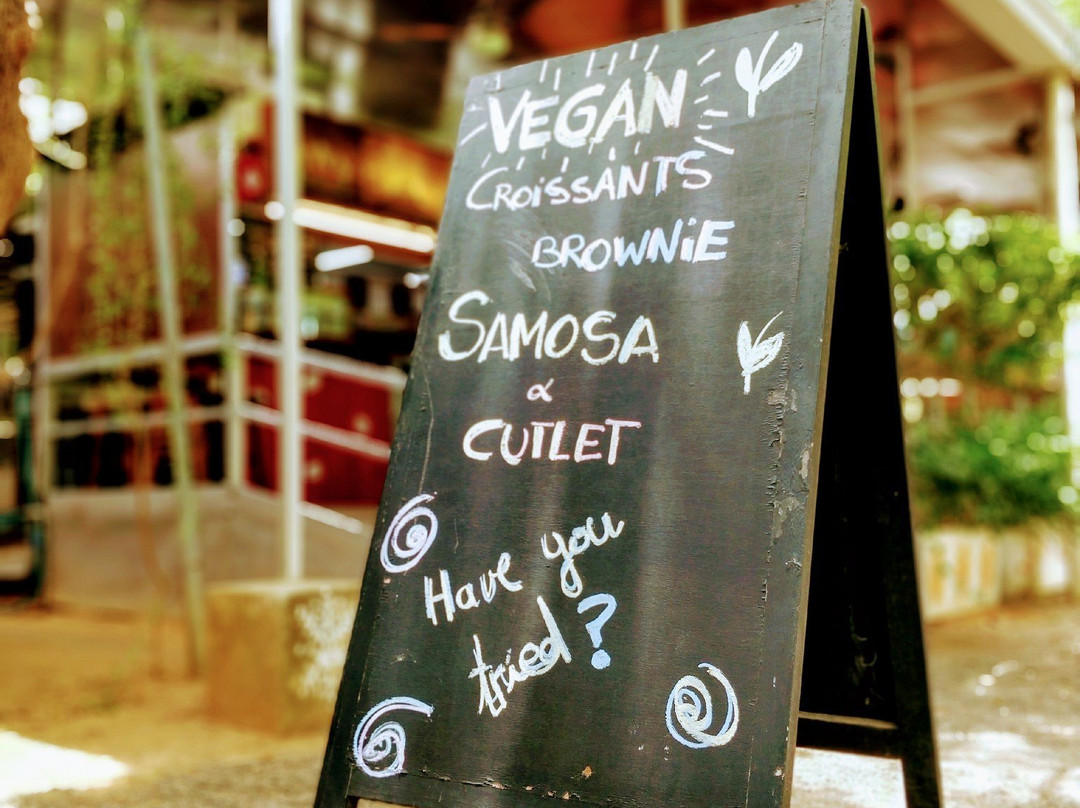 VEGAN
CROiSSANTS
BROWNiE
SAMOSA
&
CUTLET
Have you
tried?